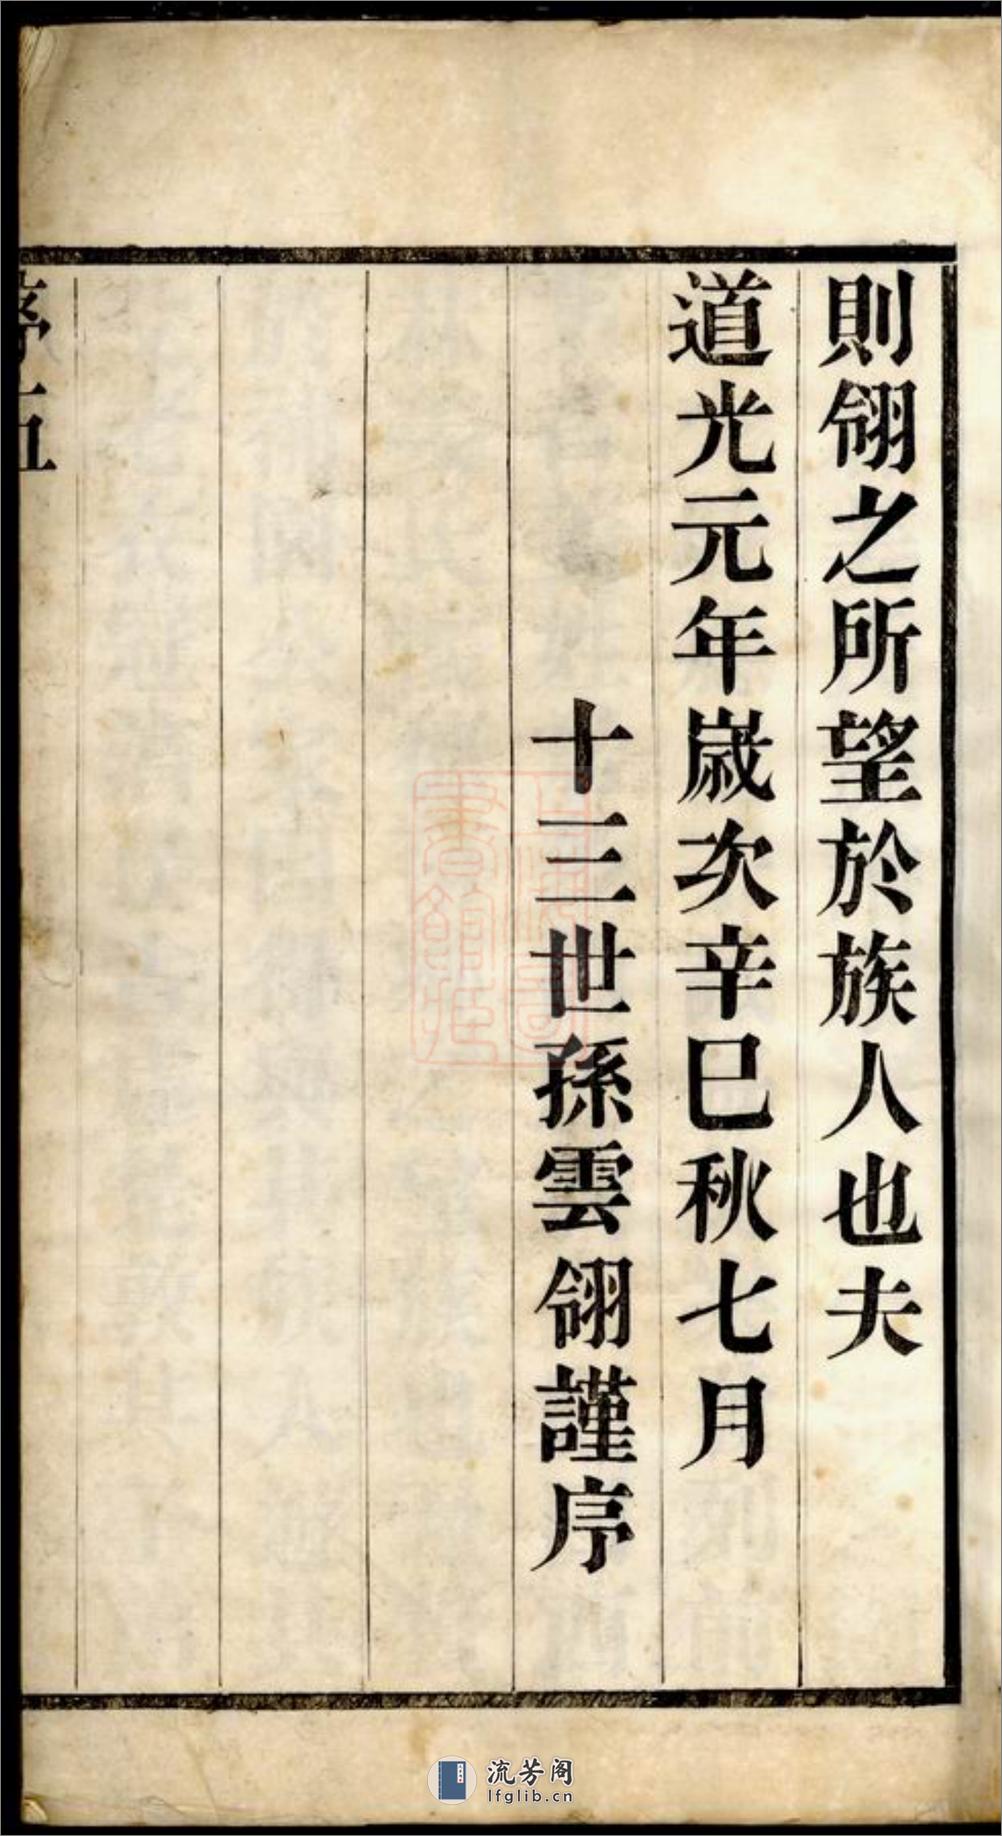 則翎之所望於族人也夫
道光元年歲次辛巳秋七月
十三世孫雲翎謹序
序五
流芳阁
lfglib.cn